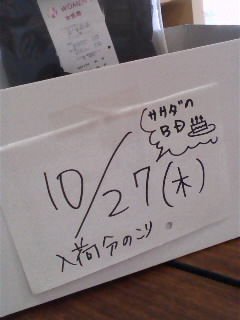 WOMEN
ササダの
BD
10/27(木)
入荷分のこり